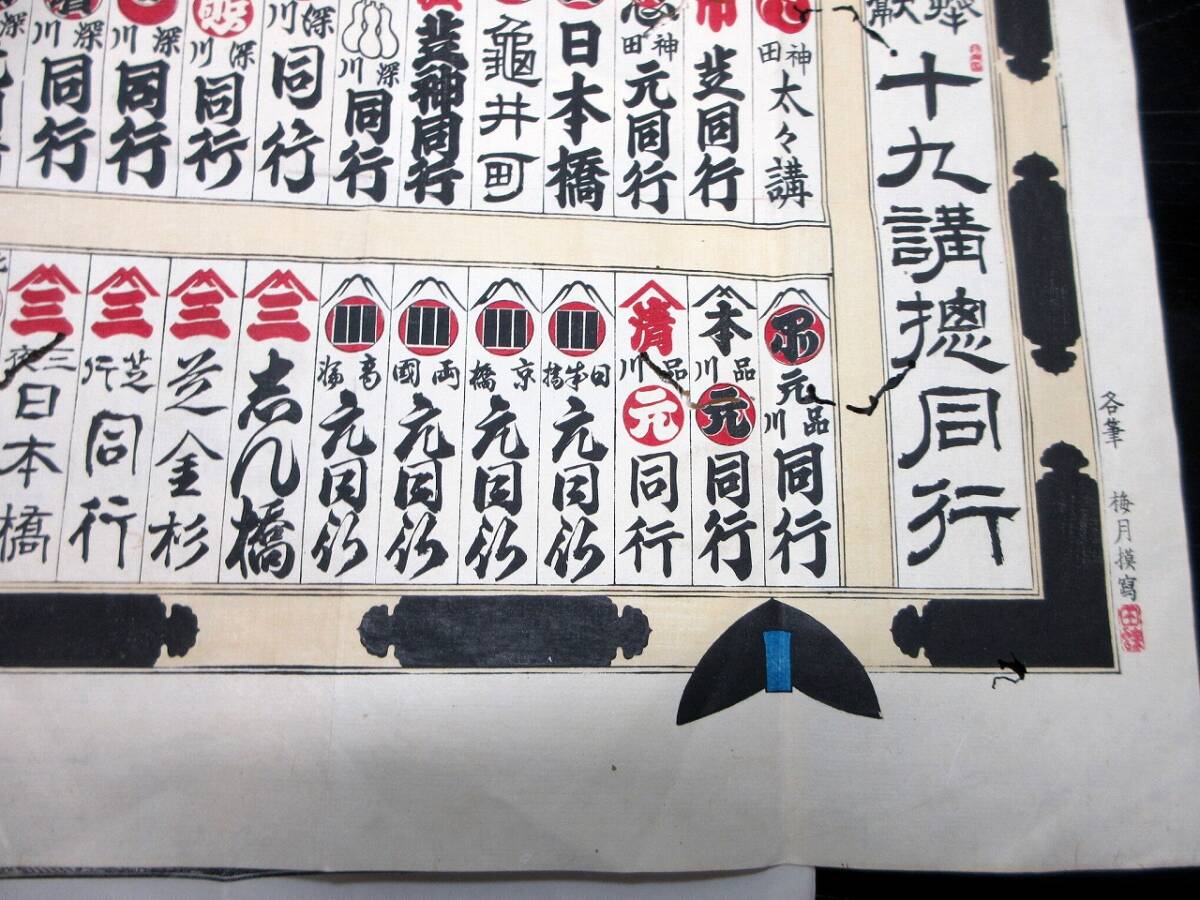 各筆 梅月摸寫
十九講摠同行
神田 太々講
芝同行
神田 元同行
日本橋
龜井町
芝神同行
深川 同行
深川 同行
深川 同行
深川 同行
深川 同行
品川 元同行
本 品川 元 同行
清 品川 元 同行
日本橋 元同行
京橋 元同行
両國 元同行
高輪 元同行
三 志ん橋
三 芝金杉
三 芝 同行
三 日本橋